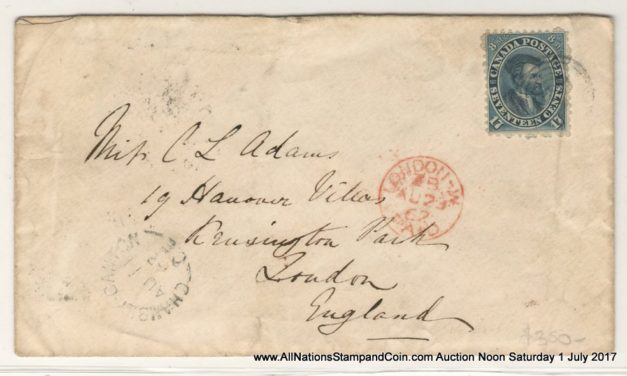 8 CANADA POSTAGE 8
17 SEVENTEEN CENTS 17
Miss C L Adams
19 Hanover Villas
Kensington Park
London
England
LONDON
AU 2
67
PAID
CANTON
AU
$350-
www.AllNationsStampandCoin.com Auction Noon Saturday 1 July 2017